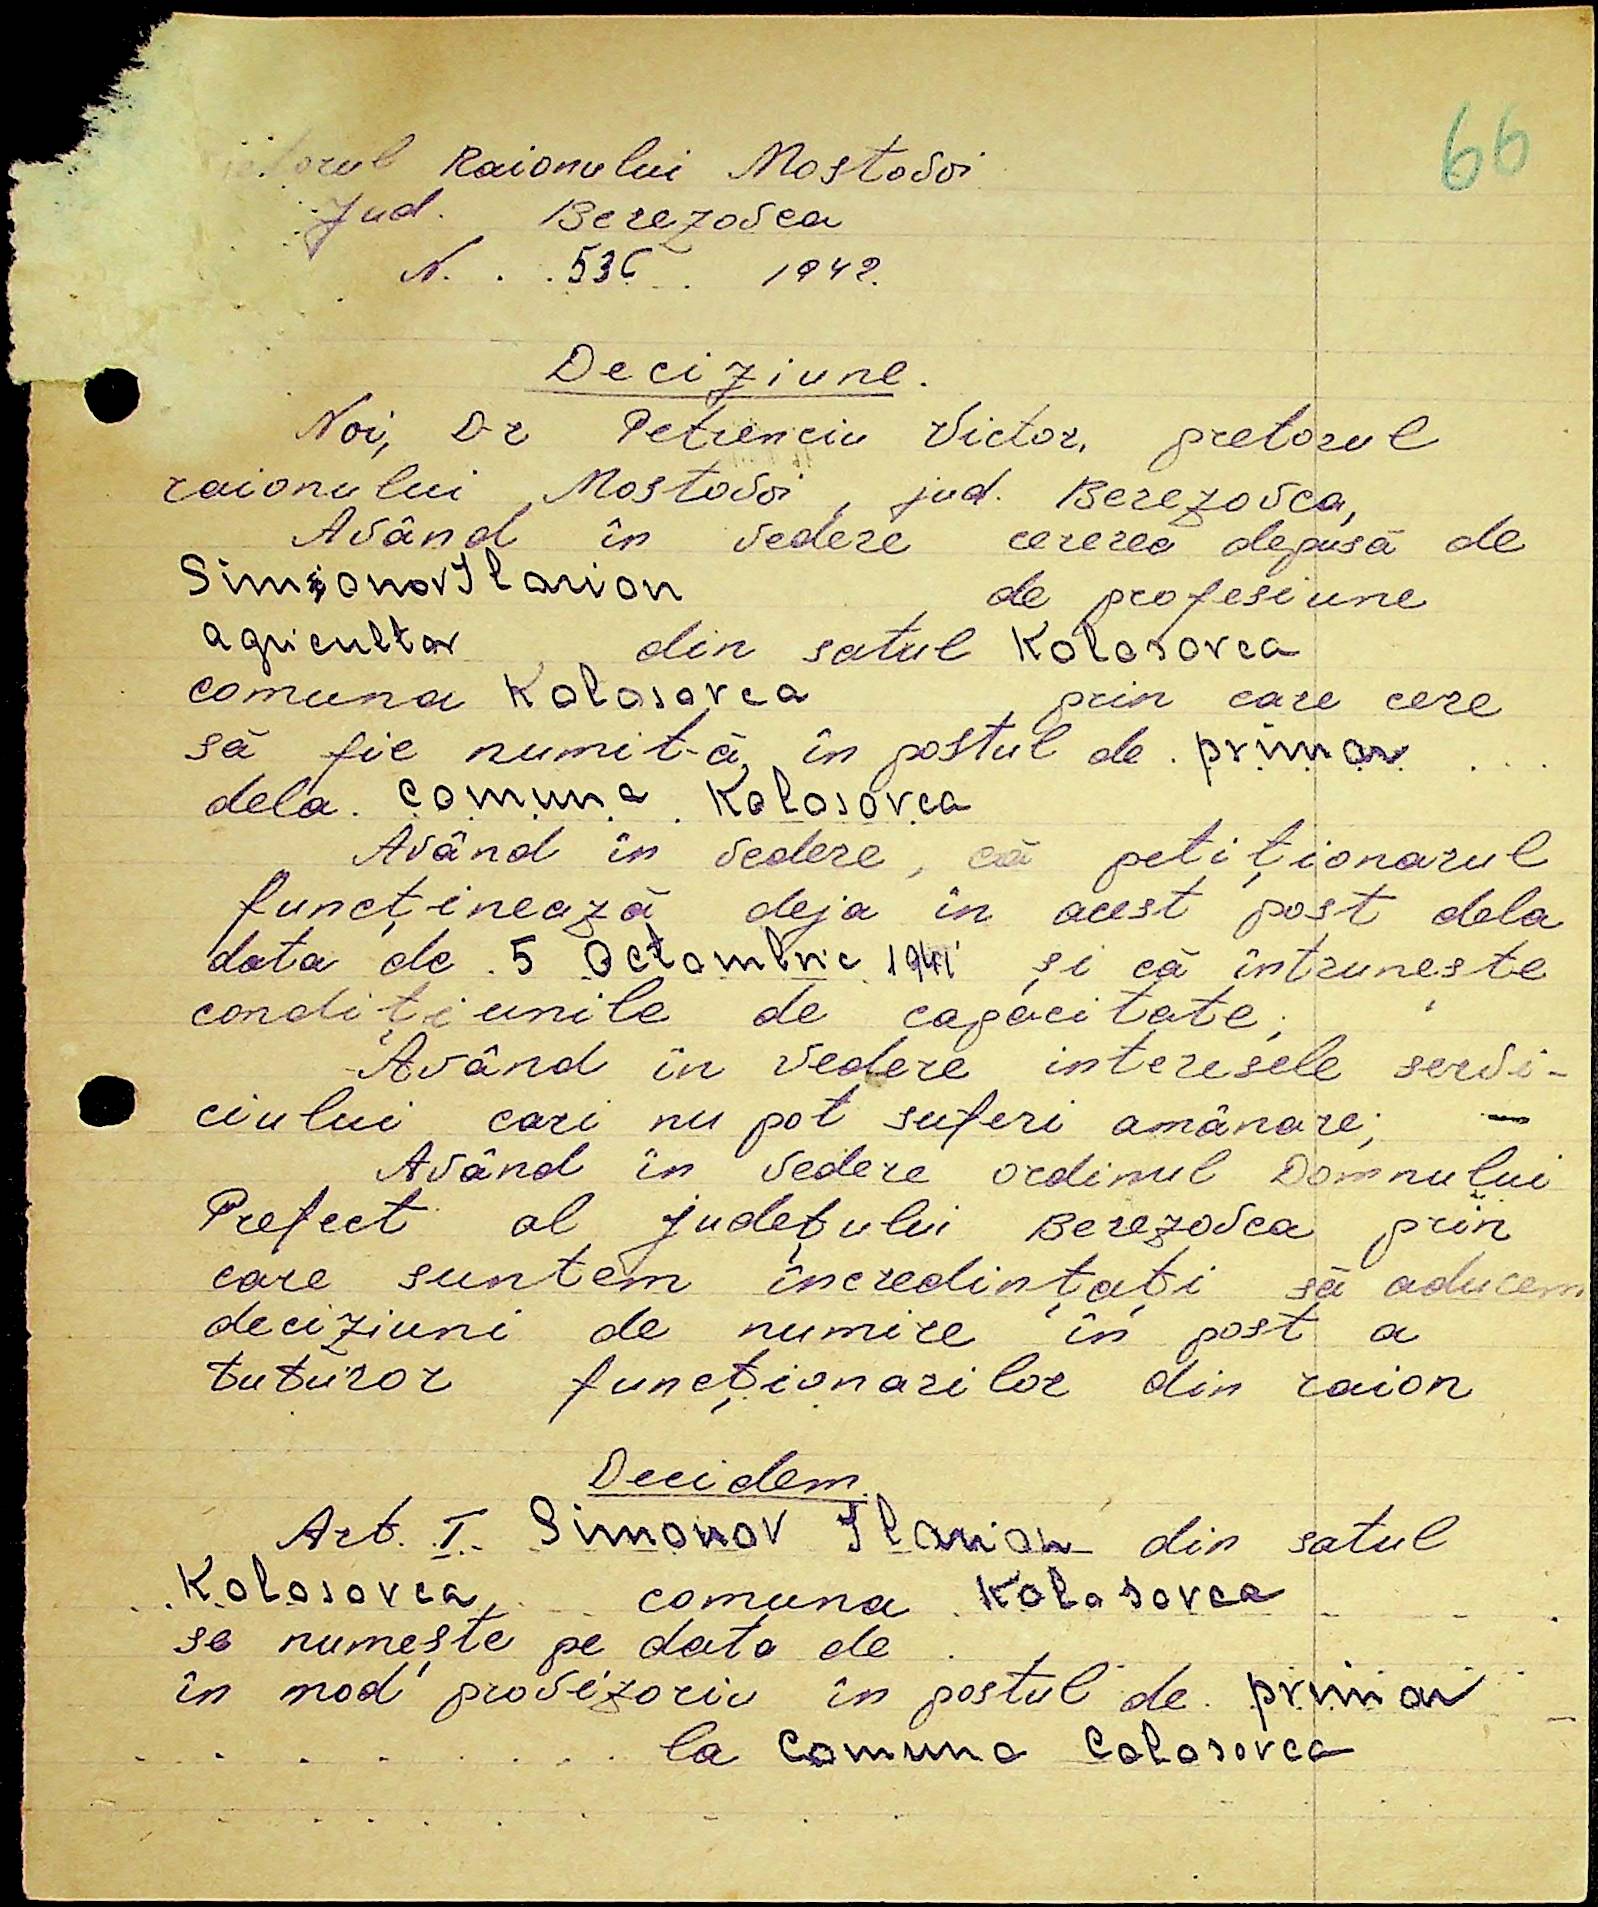 66
Raionului Mostovoi
Jud. Berezovca
N. . . 536 . 1942.
Deciziune.
Noi, Dr Petrenciu Victor, pretorul
raionului Mostovoi, jud. Berezovca,
Având în vedere cererea depusă de
Simionov Ilarion , de profesiune
agricultor , din satul Kolosovca
comuna Kolosovca , prin care cere
să fie numit-ă, în postul de . primar . . .
dela . comuna . Kolosovca
Având în vedere, că petiționarul
funcținează deja în acest post dela
data de . 5 Octombrie 1941 și că întrunește
condițiunile de capacitate;
Având în vedere interesele servi-
ciului cari nu pot suferi amânare; —
Având în vedere ordinul Domnului
Prefect al județului Berezovca prin
care suntem încredințați să aducem
deciziuni de numire în post a
tuturor funcționarilor din raion
Decidem.
Art. I. Simonov Ilarion din satul
. . Kolosovca, . . comuna . Kolosovca . . .
se numește pe data de .
în mod provizoriu în postul de . primar . . _
. . . . . . . . . la comuna Colosovca